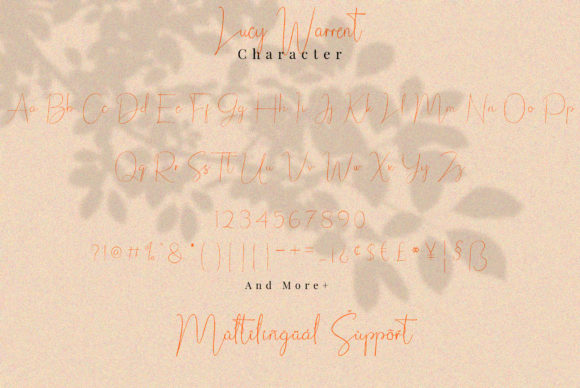 Lucy Warrent
Character
Aa Bb Cc Dd Ee Ff Gg Hh Ii Jj Kk Ll Mm Nn Oo Pp
Qq Rr Ss Tt Uu Vv Ww Xx Yy Zz
1234567890
?!@#%&*()-+=_¿¢$€£¥¦§ß
And More+
Mùltilingüál Śüppõrt